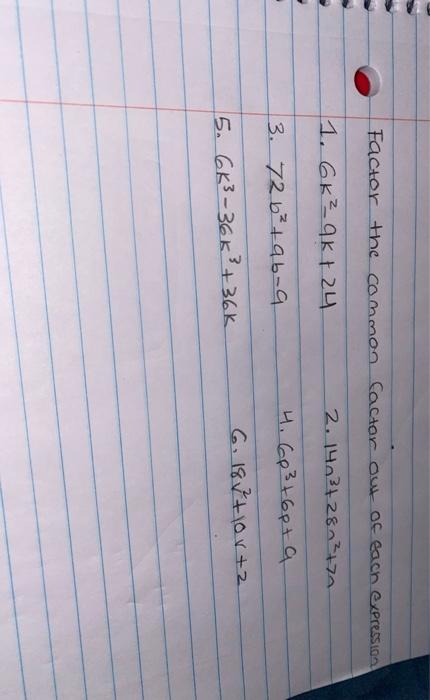 Factor the common factor out of each expression
1. 6k²-9k+24 2. 14n³+28n²+7n
3. 72b²+9b-9 4. 6p³+6p+9
5. 6k³-36k³+36k 6. 18v²+10v+2